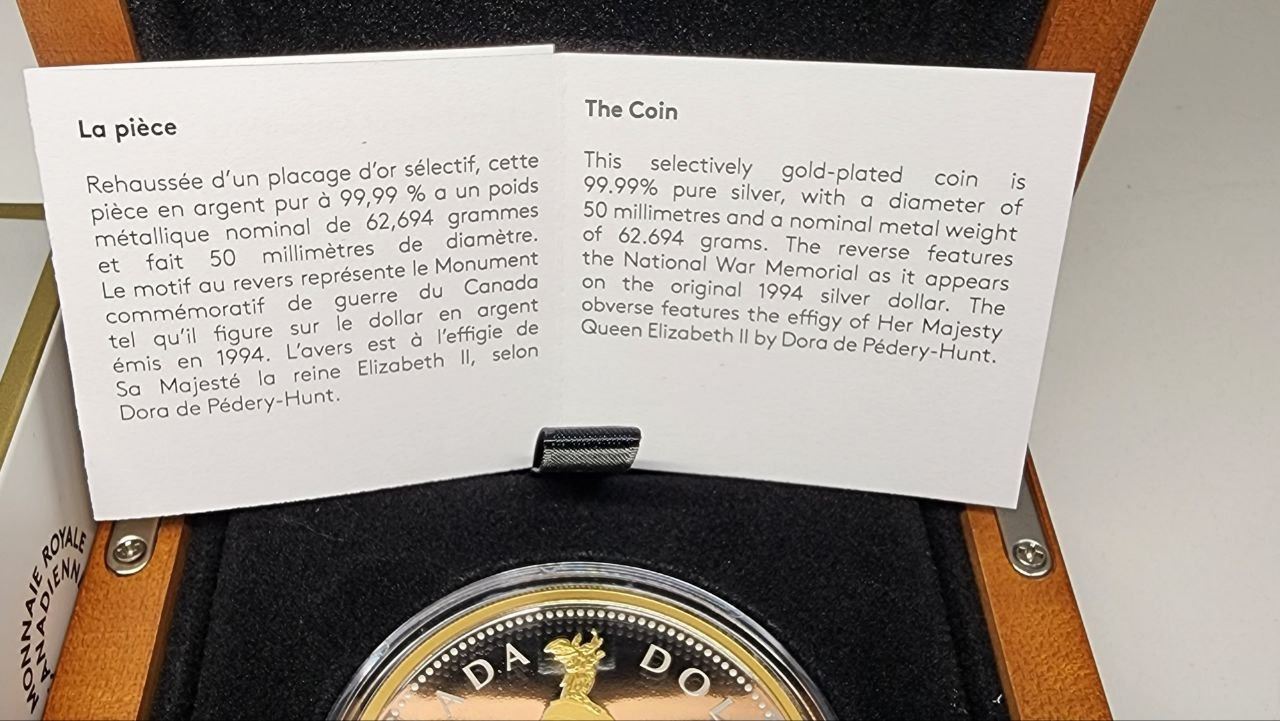 La pièce
Rehaussée d'un placage d'or sélectif, cette
pièce en argent pur à 99,99 % a un poids
métallique nominal de 62,694 grammes
et fait 50 millimètres de diamètre.
Le motif au revers représente le Monument
commémoratif de guerre du Canada
tel qu'il figure sur le dollar en argent
émis en 1994. L'avers est à l'effigie de
Sa Majesté la reine Elizabeth II, selon
Dora de Pédery-Hunt.
The Coin
This selectively gold-plated coin is
99.99% pure silver, with a diameter of
50 millimetres and a nominal metal weight
of 62.694 grams. The reverse features
the National War Memorial as it appears
on the original 1994 silver dollar. The
obverse features the effigy of Her Majesty
Queen Elizabeth II by Dora de Pédery-Hunt.
MONNAIE ROYALE